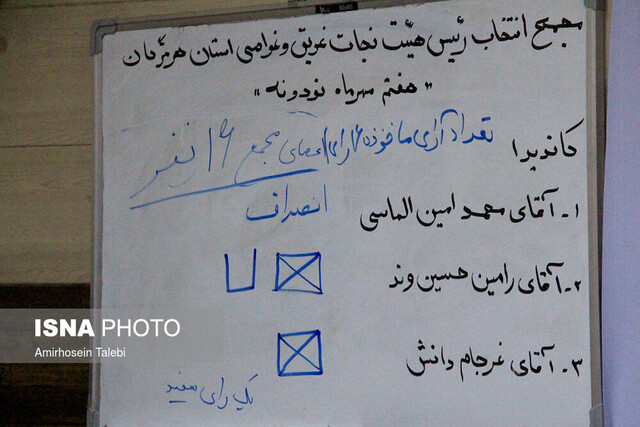 مجمع انتخاب رئیس هیئت نجات غریق و غواصی استان هرمزگان
"هفتم مهرماه نود و نه"
کاندیدا
تعداد آرای ماخوذه اعضای مجمع ۱۶ نفر
۱- آقای محمد امین الماسی انصراف
۲- آقای رامین حسین وند
۳- آقای فرجام دانش
یک رای سفید
ISNA PHOTO
Amirhosein Talebi